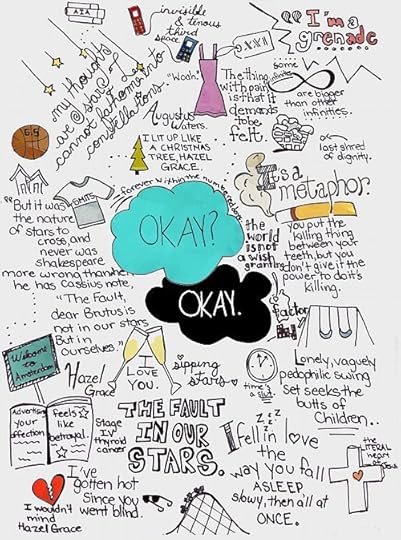 AIA
invisible
& tenous
third
space
"I'm a
grenade
my thoughts
are stars I
cannot fathom into
constellations.
"Woah."
The thing
with pain
is that it
demands
to be
felt.
Some
infinities
are bigger
than other
infinities.
6.5
Augustus
Waters.
I LIT UP LIKE
A CHRISTMAS
TREE, HAZEL
GRACE.
last shred
of dignity.
It's a
metaphor.
SMITS
forever within the numbered days
"But it was
the nature
of stars to
cross, and
never was
shakespeare
more wrong than when
he has Cassius note,
"The Fault,
dear Brutus is
not in our stars
But in
ourselves."
OKAY?
OKAY.
the
world
is not
a wish
granting
factory
you put the
killing thing
between your
teeth, but you
don't give it the
power to do its
killing.
Welcome
to
Amsterdam
Hazel
Grace
I
LOVE
YOU.
sipping
stars
time's
a slut.
Lonely, vaguely
pedophilic swing
set seeks the
butts of
Children..
Advertising
your
affection
feels
like
betrayal.
Stage
IV
thyroid
cancer
THE FAULT
IN OUR
STARS.
z z z z
I fell in love
the
way you fall
ASLEEP
slowy, then all at
ONCE.
the
LITERAL
heart
of
Jesus
I've
gotten hot
Since you
went blind.
I wouldn't
mind
Hazel Grace